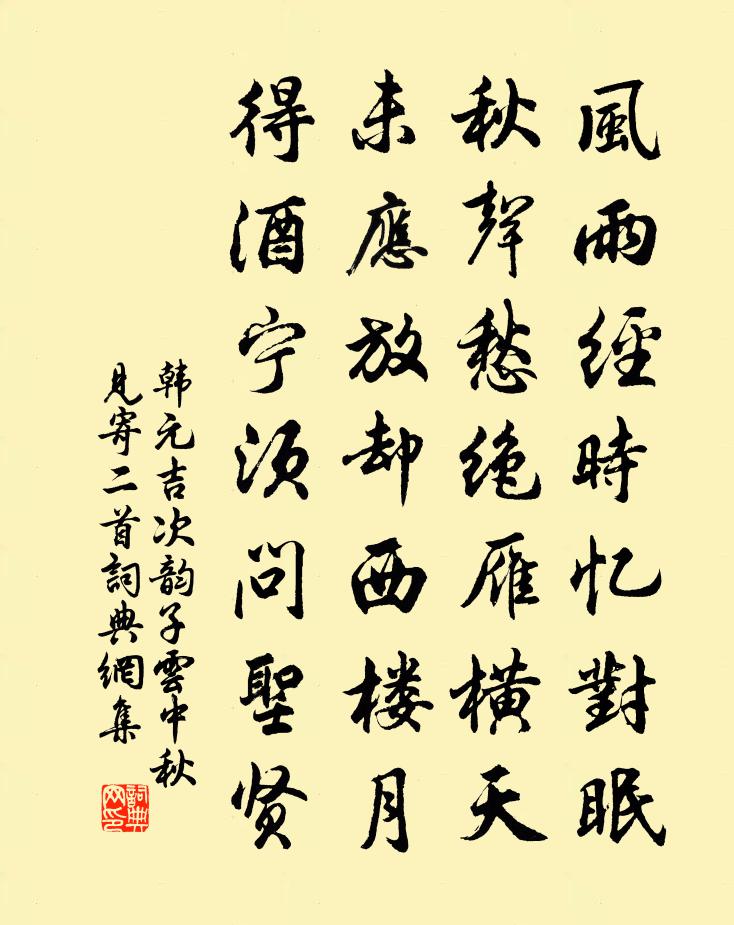 風雨經時忆對眠
秋聲愁绝雁橫天
未應放却西楼月
得酒宁须問聖贤
韩元吉次韵子雲中秋
見寄二首詞典網集
詞典網印